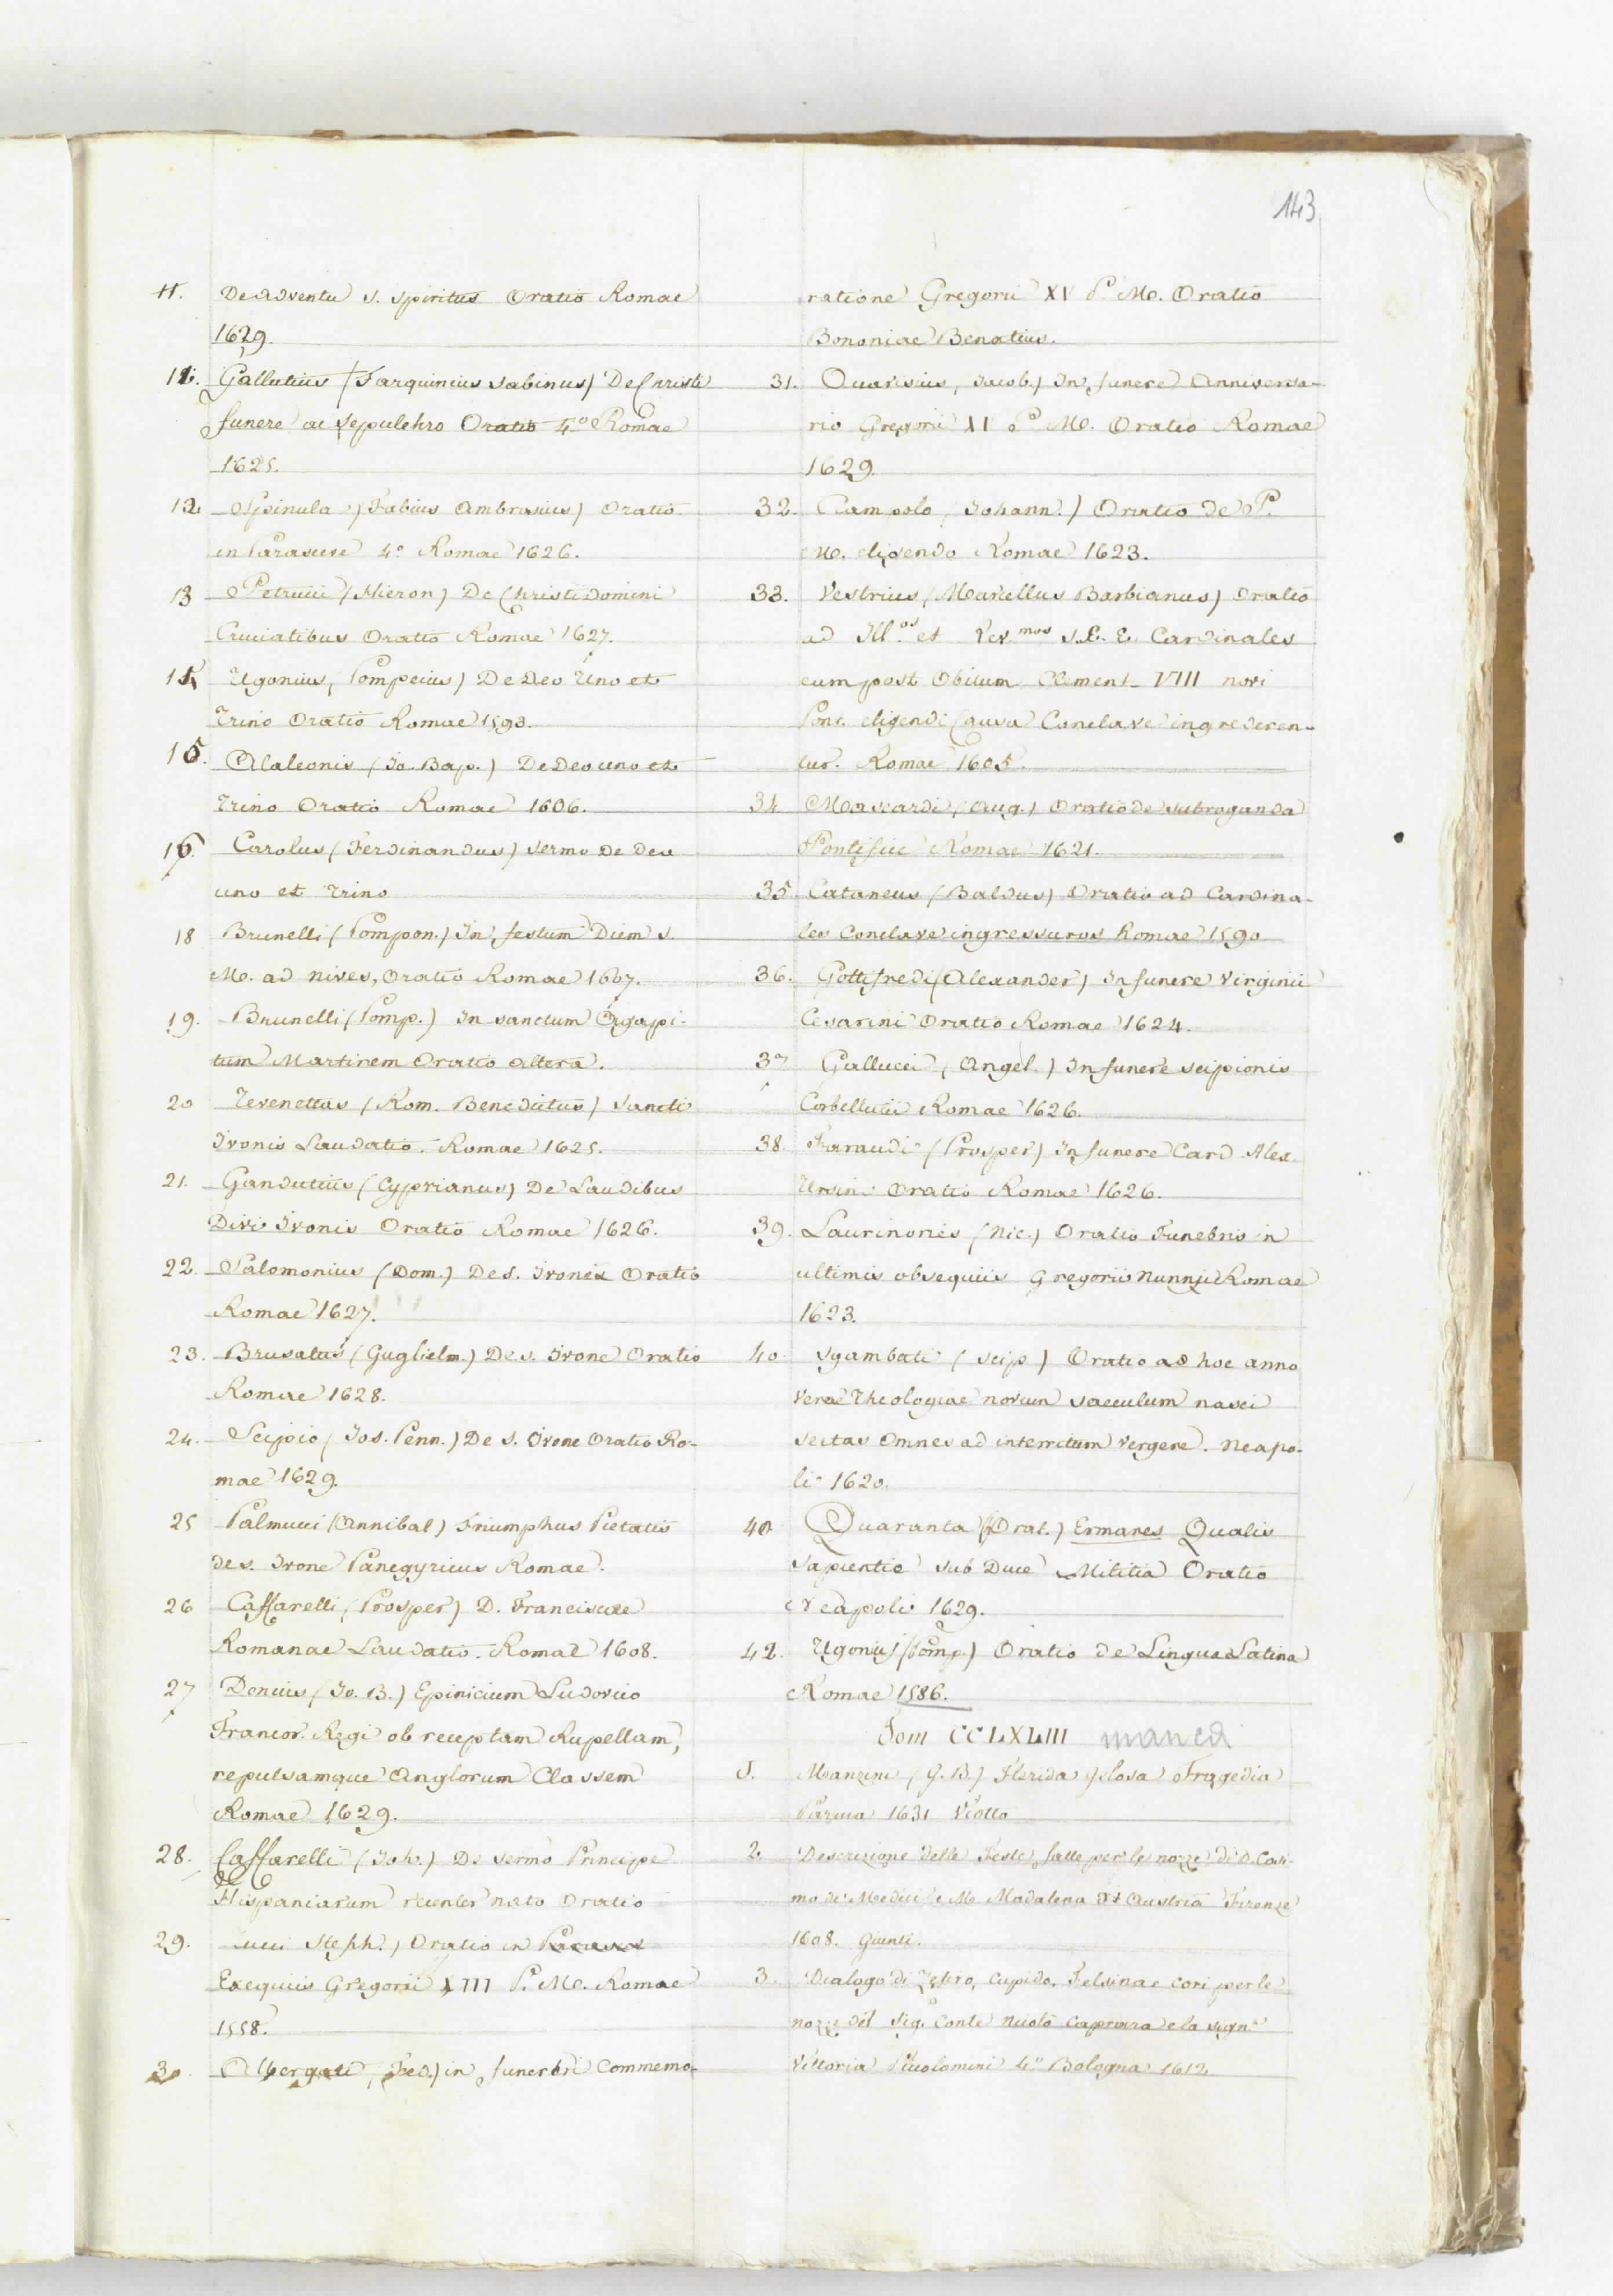 143
11. De Adventu S. Spiritus Oratio Romae
1629.
11. Gallutius (Tarquinius Sabinus) De Christi
funere ac sepulchro Oratio 4.o Romae
1625.
12 Spinula (Fabius Ambrosius) Oratio
in Parasceve 4.o Romae 1626.
13 Petrucci (Hieron) De Christi Domini
Cruciatibus Oratio Romae 1627.
15 Ugonius, Pompeius) De Deo Uno et
Trino Oratio Romae 1593.
15. Alaleonis (Jo. Bap.) De Deo uno et
Trino Oratio Romae 1606.
16. Carolus (Ferdinandus) Sermo De Deo
uno et Trino
18 Brunelli (Pompon.) In festum Diem S.
M. ad nives, Oratio Romae 1607.
19. Brunelli (Pomp.) In sanctum Agapi-
tum Martirem Oratio altera.
20 Tevenettas (Rom. Benedictus) Sancti
Ivonis Laudatio. Romae 1625.
21. Gandutius (Cyprianus) De Laudibus
Divi Ivonis Oratio Romae 1626.
22. Salomonius (Dom.) De S. Ivone Oratio
Romae 1627.
23. Brusatus (Guglielm.) De S. Ivone Oratio
Romae 1628.
24. Scipio (Jos. Penn.) De S. Ivone Oratio Ro-
mae 1629.
25 Palmucci (Annibal) Triumphus Pietatis
de S. Ivone Panegyricus Romae.
26 Caffarelli (Prosper) D. Franciscae
Romanae Laudatio. Romae 1608.
27 Doncius (Jo. B.) Epinicium Ludovico
Francor. Regi ob receptam Rupellam,
repulsamque Anglorum Classem
Romae 1629.
28. Caffarelli (Joh.) De sermo Principe
Hispaniarum recenter nato Oratio
29. Steph.) Oratio in
Exequiis Gregorii XIII P. M. Romae
1558.
30 Albergati, Fed.) in funerbri Commemo-
ratione Gregorii XV P. M. Oratio
Bononiae Benatius.
31. Quarisius, Jacob.) In funere Anniversa-
rio Gregorii XV P. M. Oratio Romae
1629.
32. Campolo, Johann.) Oratio de P.
M. eligendo Romae 1623.
33. Vestrius (Marcellus Barbianus) Oratio
ad Ill.os et Rev.mos S. R. E. Cardinales
cum post Obitum Clement. VIII novi
Pont. eligendi Causa Conclave ingrederen-
tur. Romae 1605.
34. Mascardi (Aug.) Oratio de subroganda
Pontifice Romae 1621.
35 Cataneus (Baldus) Oratio ad Cardina-
les Conclave ingressuros Romae 1590
36. Gottifredi (Alexander) In funere Virginii
Cesarini Oratio Romae 1624.
37 Gallucci (Angel.) In funere Scipionis
Cobellutii Romae 1626.
38. Faraudi (Prosper) In funere Card. Alex.
Ursini Oratio Romae 1626.
39. Laurinones (Nic.) Oratio Funebris in
ultimis obsequiis Gregorii Nunnii Romae
1623.
40. Sgambati (Scip) Oratio ad hoc anno
Verae Theologiae novum saeculum nasci
sectas Omnes ad interritum Vergere. Neapo-
li 1620.
40 Quaranta (Orat.) Ermanes Qualis
Sapientia sub Duce Militia Oratio
Neapoli 1629.
42. Ugonius (Pomp.) Oratio de Lingua Latina
Romae 1586.
Tom CCLXLIII manca
1. Manzini (G. B.) Flerida gelosa Tragedia
Parma 1631 Viotto
2. Descrizione delle Feste fatte per le nozze di D. Cosi-
mo de' Medici e M. Madalena d'Austria Firenze
1608. Giunti.
3. Dialogo di Zefiro, Cupido, Felsina e cori per le
nozze del Sig. Conte Nicolò Caprara e la Sign.a
Vittoria Piccolomini 4.o Bologna 1612